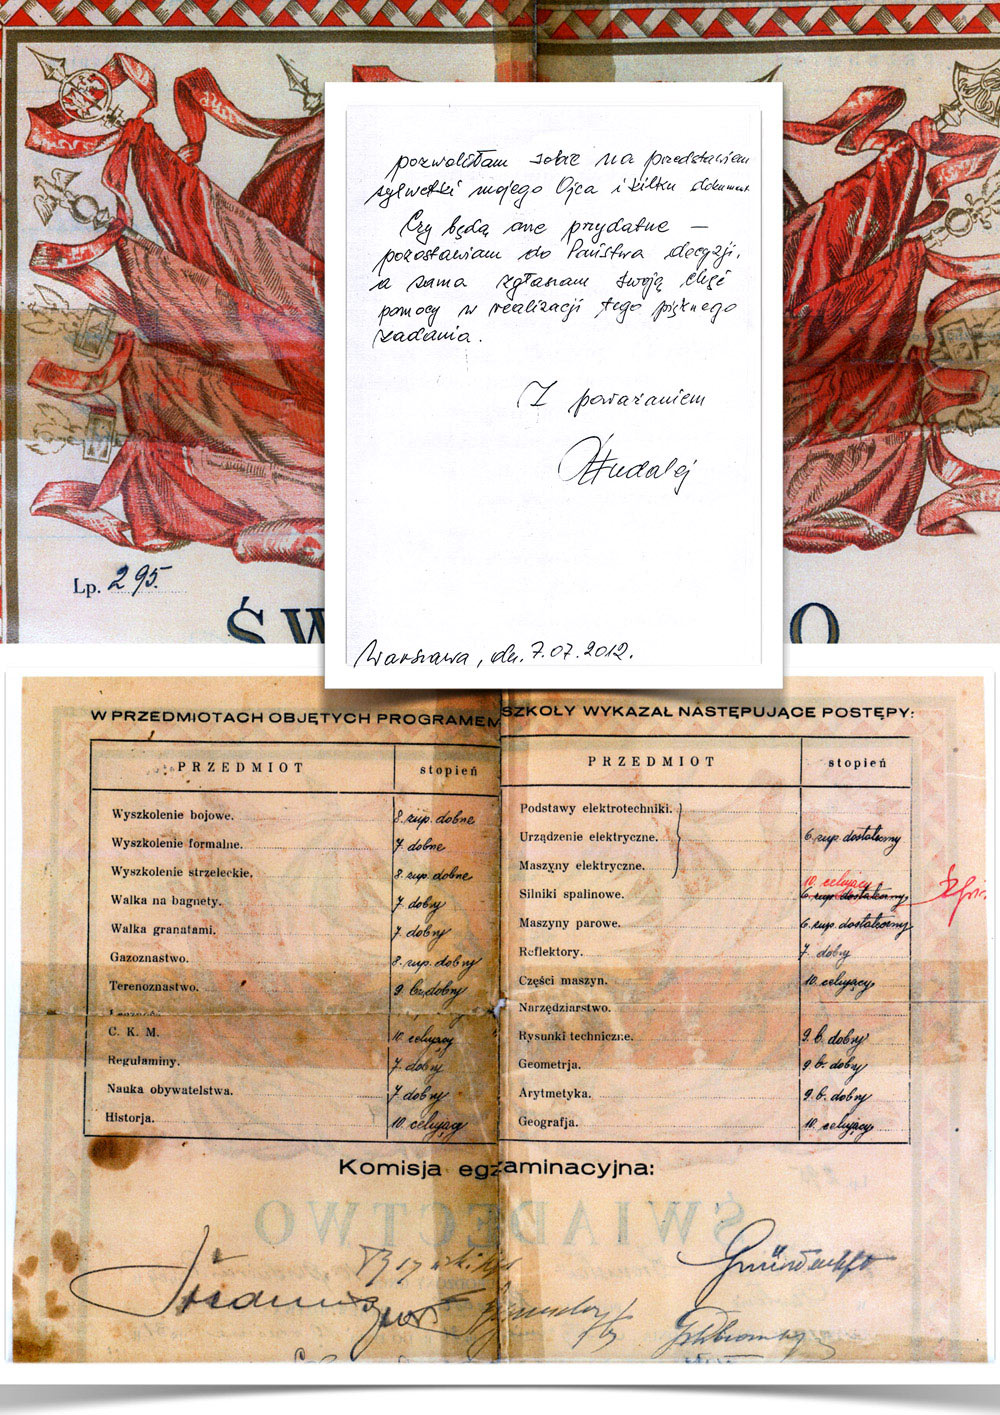 pozwoliłam sobie na przedstawien
sylwetki mojego Ojca i kilku dokument
Czy będą one przydatne —
pozostawiam do Państwa decyzji,
a sama zgłaszam swoją chęć
pomocy w realizacji tego pięknego
zadania.
Z poważaniem
Warszawa, dn. 7.07.2012.
Lp. 295.
ŚW
O
W PRZEDMIOTACH OBJĘTYCH PROGRAMEM SZKOŁY WYKAZAŁ NASTĘPUJĄCE POSTĘPY:
PRZEDMIOT stopień
Wyszkolenie bojowe. 8 zup. dobne
Wyszkolenie formalne. 7 dobne
Wyszkolenie strzeleckie. 8 zup. dobne
Walka na bagnety. 7 dobry
Walka granatami. 7 dobry
Gazoznastwo. 8. zup. dobry
Terenoznastwo. 9 b. dobry
C. K. M. 10 celujący
Regulaminy. 7. dobry
Nauka obywatelstwa. 7 dobry
Historja. 10 celujący
PRZEDMIOT stopień
Podstawy elektrotechniki.
Urządzenie elektryczne. 6 zup dostateczny
Maszyny elektryczne.
10. celujący
Silniki spalinowe. 6 zup dostateczny
Maszyny parowe. 6 zup. dostateczny
Reflektory. 7 dobry
Części maszyn. 10. celujący
Narzędziarstwo.
Rysunki techniczne. 9. b. dobry
Geometrja. 9 b. dobry
Arytmetyka. 9. b. dobry
Geografja. 10. celujący
Komisja egzaminacyjna:
ŚWIADECTWO